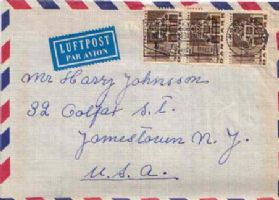 LUFTPOST
PAR AVION
Mr Harry Johnsson
32 Colfax S.t.
Jamestown N. Y.
U. S. A.